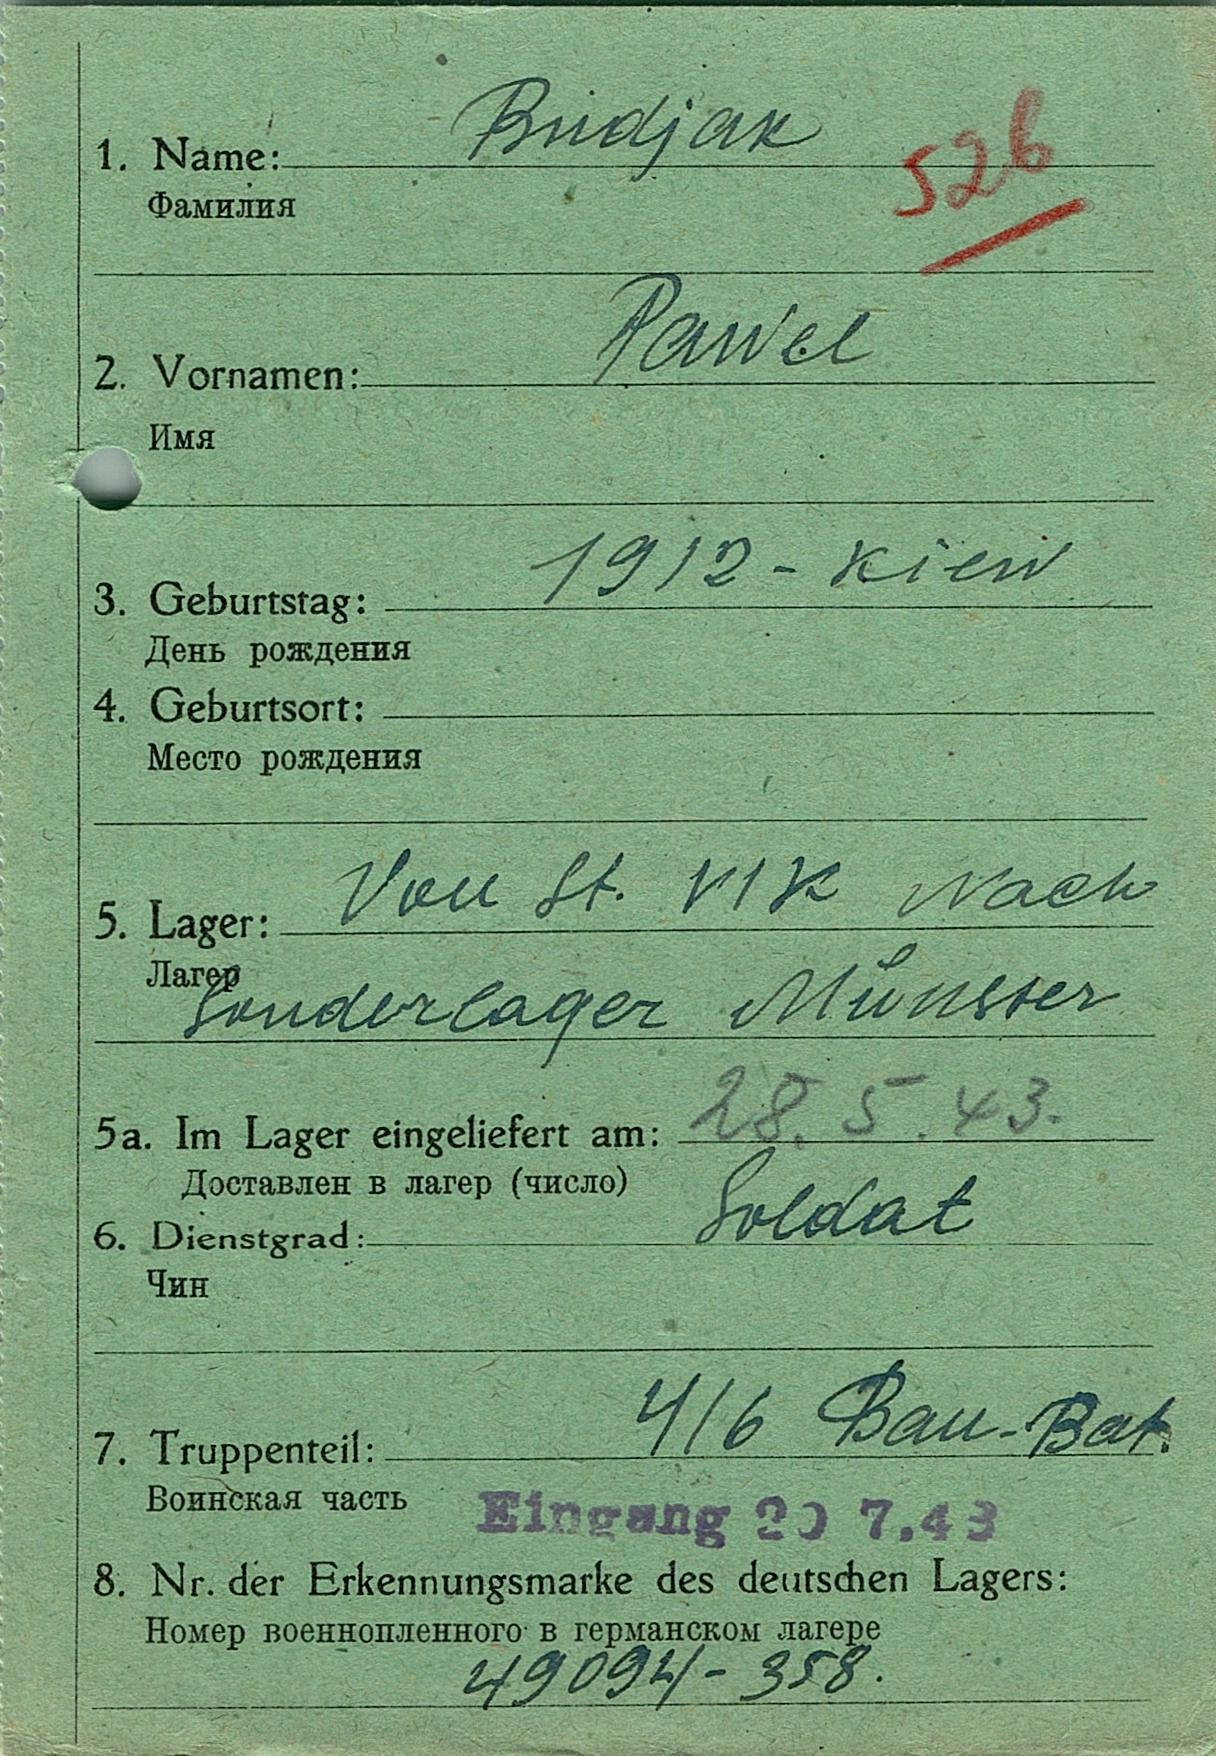 1. Name: Budjak
526
Фамилия
2. Vornamen: Pawel
Имя
3. Geburtstag: 1912 - Kiew
День рождения
4. Geburtsort:
Место рождения
5. Lager: Von St. VI K Nach
Лагер
Sonderlager Münster
5a. Im Lager eingeliefert am: 28.5.43.
Доставлен в лагер (число)
6. Dienstgrad: Soldat
Чин
7. Truppenteil: 416 Bau-Bat.
Воинская часть
Eingang 20 7.43
8. Nr. der Erkennungsmarke des deutschen Lagers:
Номер военнопленного в германском лагере
49094-358.